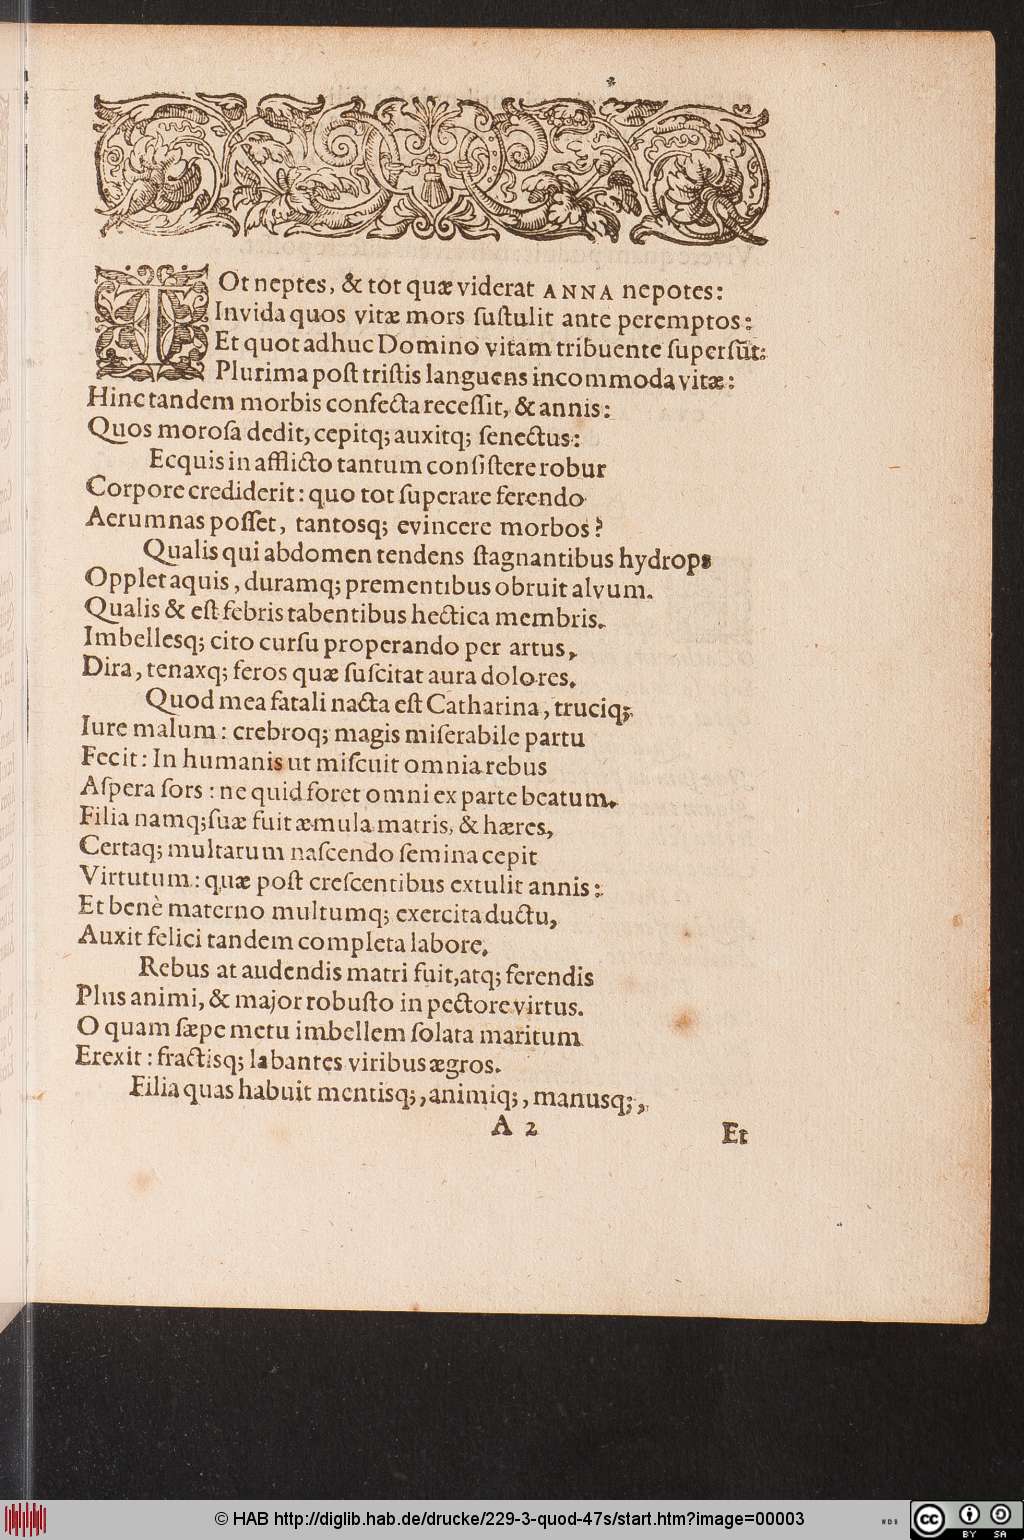 TOt neptes, & tot quæ viderat ANNA nepotes:
Invida quos vitæ mors ſuſtulit ante peremptos:
Et quot adhuc Domino vitam tribuente ſuperſūt:
Plurima poſt triſtis languens incommoda vitæ:
Hinc tandem morbis confecta receſſit, & annis:
Quos moroſa dedit, cepitq; auxitq; ſenectus:
Ecquis in afflicto tantum conſiſtere robur
Corpore crediderit: quo tot ſuperare ferendo
Aerumnas poſſet, tantosq; evincere morbos?
Qualis qui abdomen tendens ſtagnantibus hydrops
Opplet aquis, duramq; prementibus obruit alvum.
Qualis & eſt febris tabentibus hectica membris.
Imbellesq; cito curſu properando per artus,
Dira, tenaxq; feros quæ ſuſcitat aura dolores.
Quod mea fatali nacta eſt Catharina, truciq;
Iure malum: crebroq; magis miſerabile partu
Fecit: In humanis ut miſcuit omnia rebus
Aſpera ſors: ne quid foret omni ex parte beatum.
Filia namq; ſuæ fuit æmula matris, & hæres,
Certaq; multarum naſcendo ſemina cepit
Virtutum: quæ poſt creſcentibus extulit annis:
Et benè materno multumq; exercita ductu,
Auxit felici tandem completa labore.
Rebus at audendis matri fuit, atq; ferendis
Plus animi, & major robuſto in pectore virtus.
O quam ſæpe metu imbellem ſolata maritum
Erexit: fractisq; labantes viribus ægros.
Filia quas habuit mentisq;, animiq;, manusq;,
A 2
Et
© HAB http://diglib.hab.de/drucke/229-3-quod-47s/start.htm?image=00003
WDB
cc
BY SA